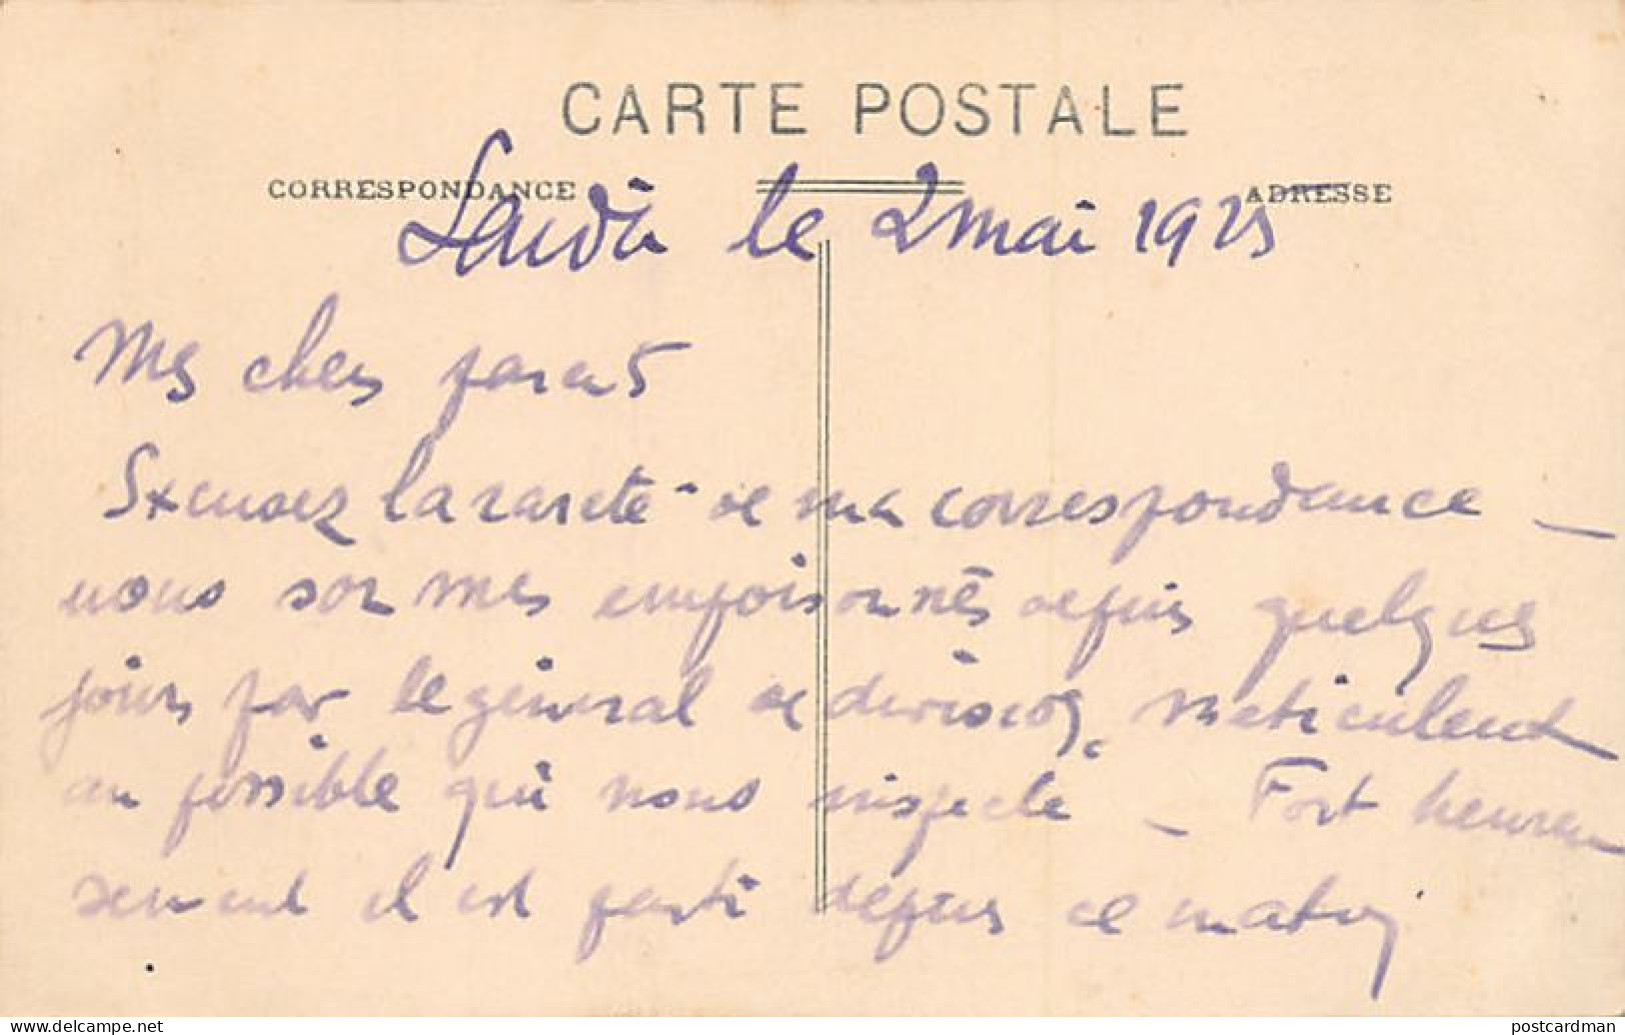 CARTE POSTALE
CORRESPONDANCE ADRESSE
Saïda le 2 mai 1925
Mes chers parents
Excusez la rareté de ma correspondance —
nous sommes empoisonnés depuis quelques
jours par le général de division, méticuleux
au possible qui nous inspecte — Fort heureu
sement il est parti depuis ce matin
postcard-box.delcampe.net
postcardman